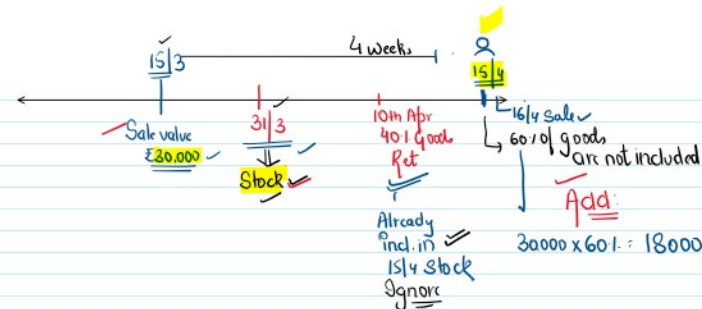 15/3
4 weeks
15/4
Sale value
₹30,000
31/3
Stock
10th Apr
40% Goods
Ret
Already
incl. in
15/4 Stock
Ignore
16/4 Sale
60% of goods
are not included
Add:
30000 x 60% : 18000